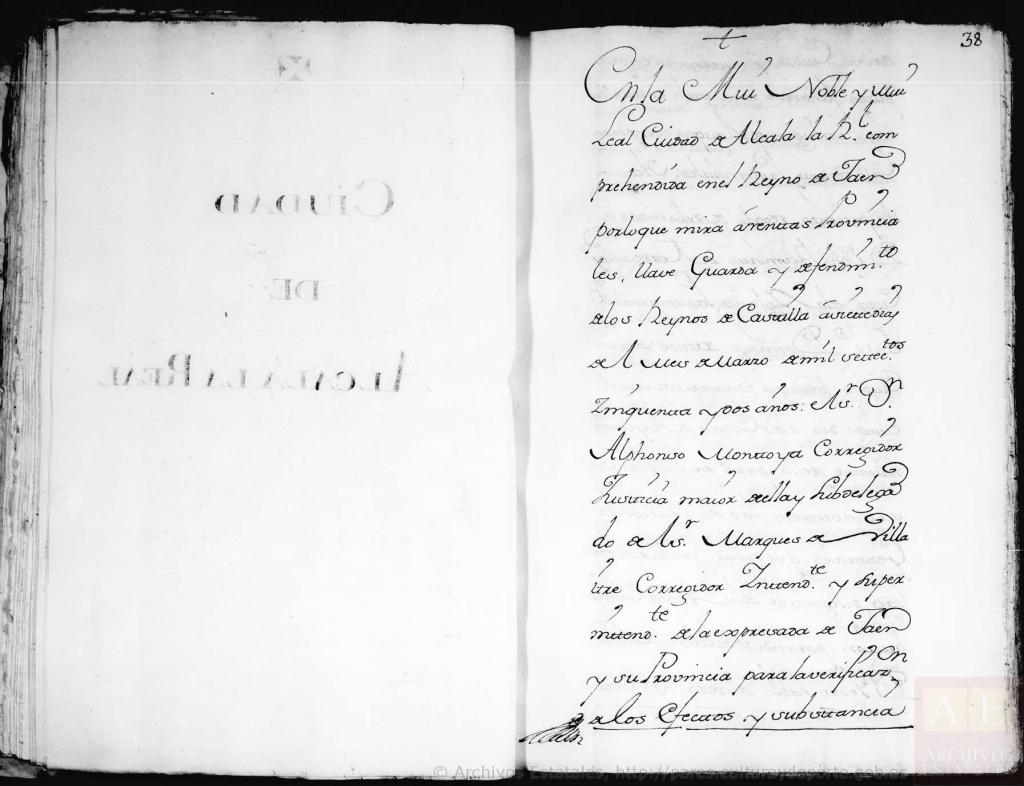 CIUDAD
DE
ALCALA LA REAL
38
En la Mui Noble y mui
Leal Ciudad de Alcala la Rl. com
prehendida en el Reyno de Jaen
por lo que mira á rentas Provincia
les, llave Guarda y defendim.to
de los Reynos de Castilla á siete dias
de el mes de Marzo de mil setec.tos
Zinquenta y dos años: el s.r D.n
Alphonso Montoya Corregidor
Justicia maior de ella y subdelega
do de el s.r Marques de Villa
itre Corregidor Intend.te y super
intend.te de la expresada de Jaen
y su Provincia para la verificaz.on
de los efectos y substancia
© Archivos Estatales, http://pares.culturaydeporte.gob.es
AE
ARCHIVOS
ESTATALES